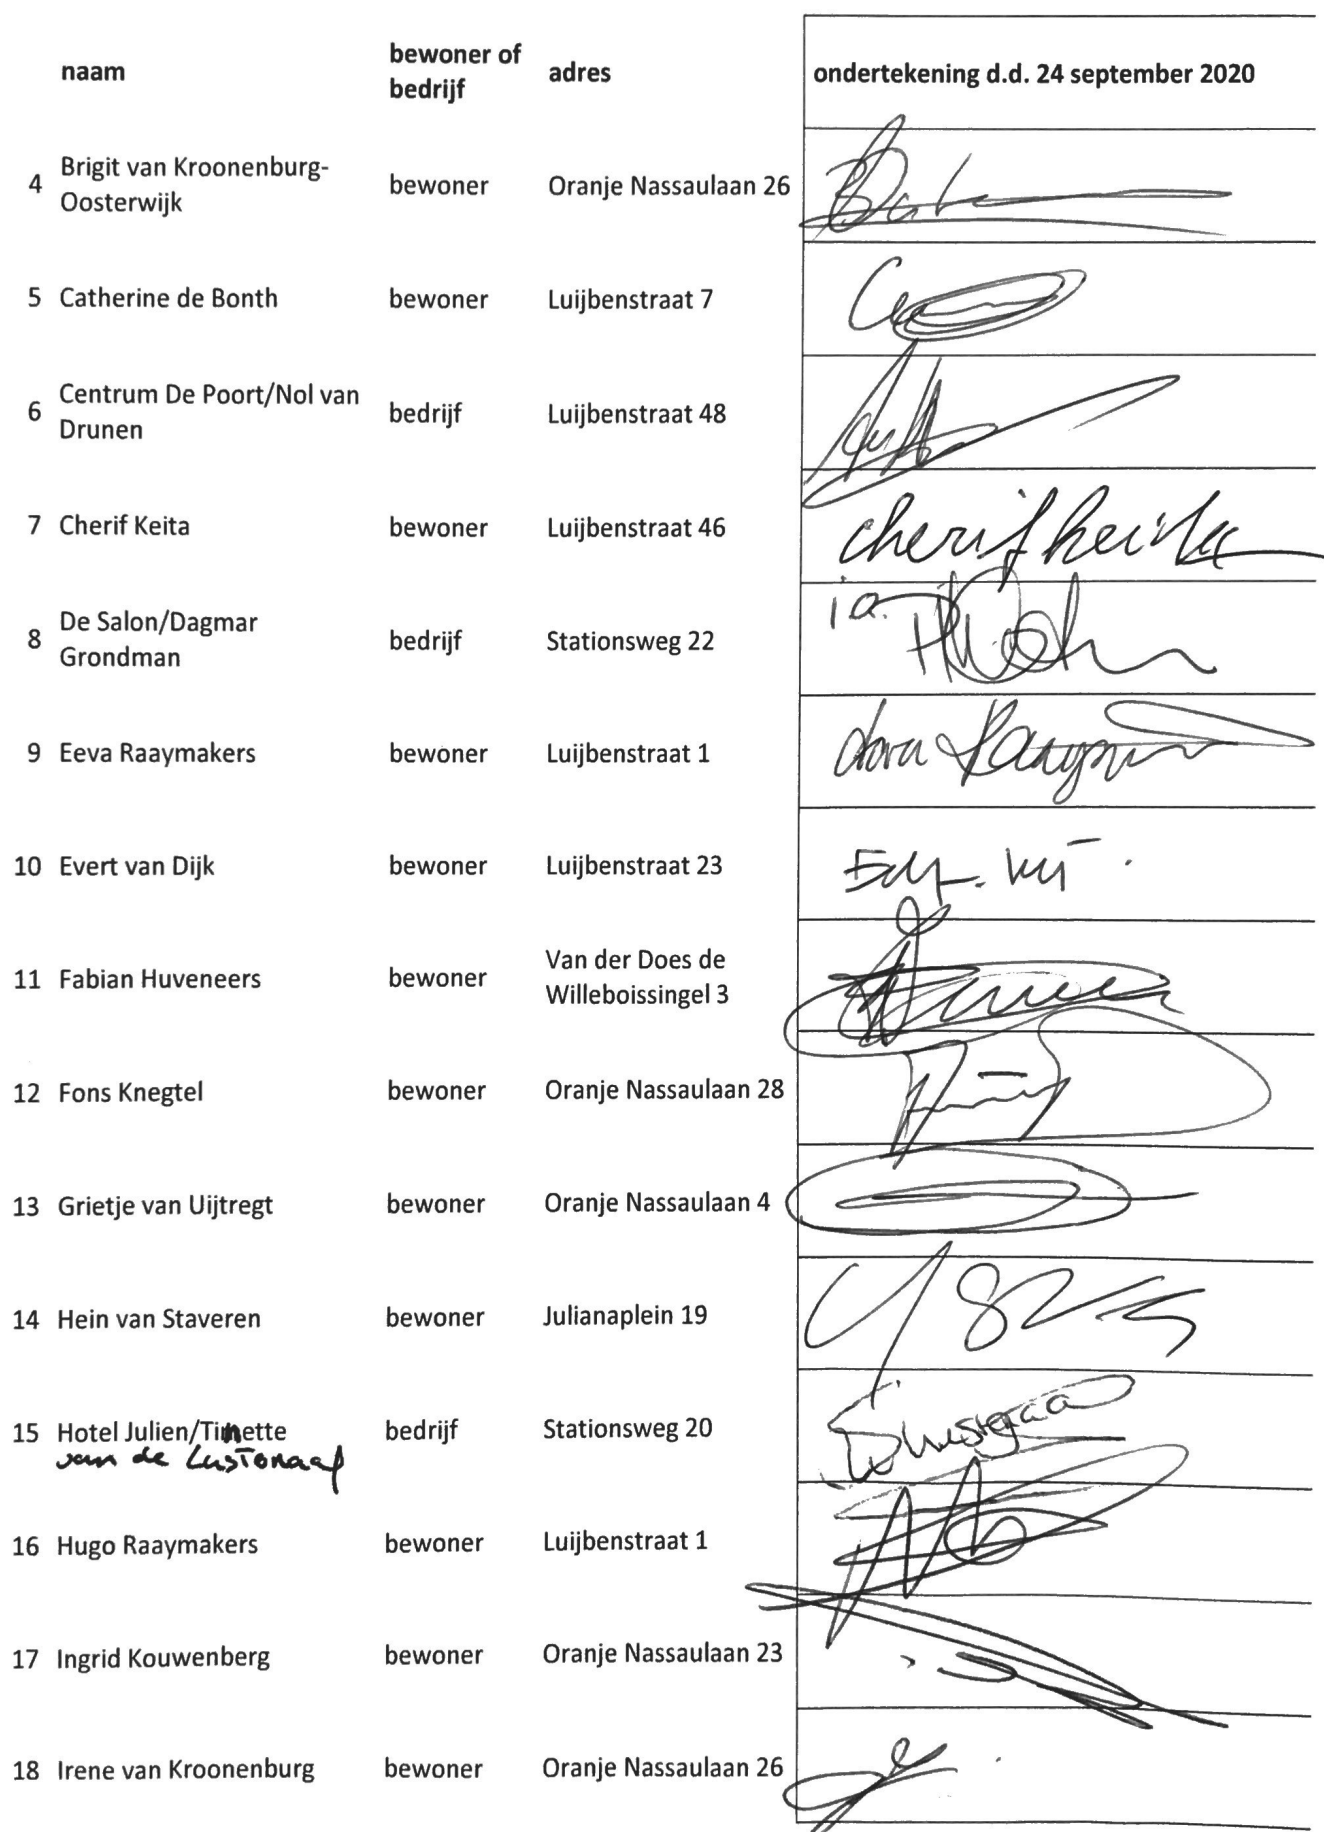 naam bewoner of bedrijf adres ondertekening d.d. 24 september 2020
4 Brigit van Kroonenburg-
Oosterwijk bewoner Oranje Nassaulaan 26
5 Catherine de Bonth bewoner Luijbenstraat 7
6 Centrum De Poort/Nol van
Drunen bedrijf Luijbenstraat 48
7 Cherif Keita bewoner Luijbenstraat 46 cherif keita
8 De Salon/Dagmar
Grondman bedrijf Stationsweg 22 i.o.
9 Eeva Raaymakers bewoner Luijbenstraat 1
10 Evert van Dijk bewoner Luijbenstraat 23
11 Fabian Huveneers bewoner Van der Does de
Willeboissingel 3
12 Fons Knegtel bewoner Oranje Nassaulaan 28
13 Grietje van Uijtregt bewoner Oranje Nassaulaan 4
14 Hein van Staveren bewoner Julianaplein 19
15 Hotel Julien/Tinette bedrijf Stationsweg 20
van de
16 Hugo Raaymakers bewoner Luijbenstraat 1
17 Ingrid Kouwenberg bewoner Oranje Nassaulaan 23
18 Irene van Kroonenburg bewoner Oranje Nassaulaan 26